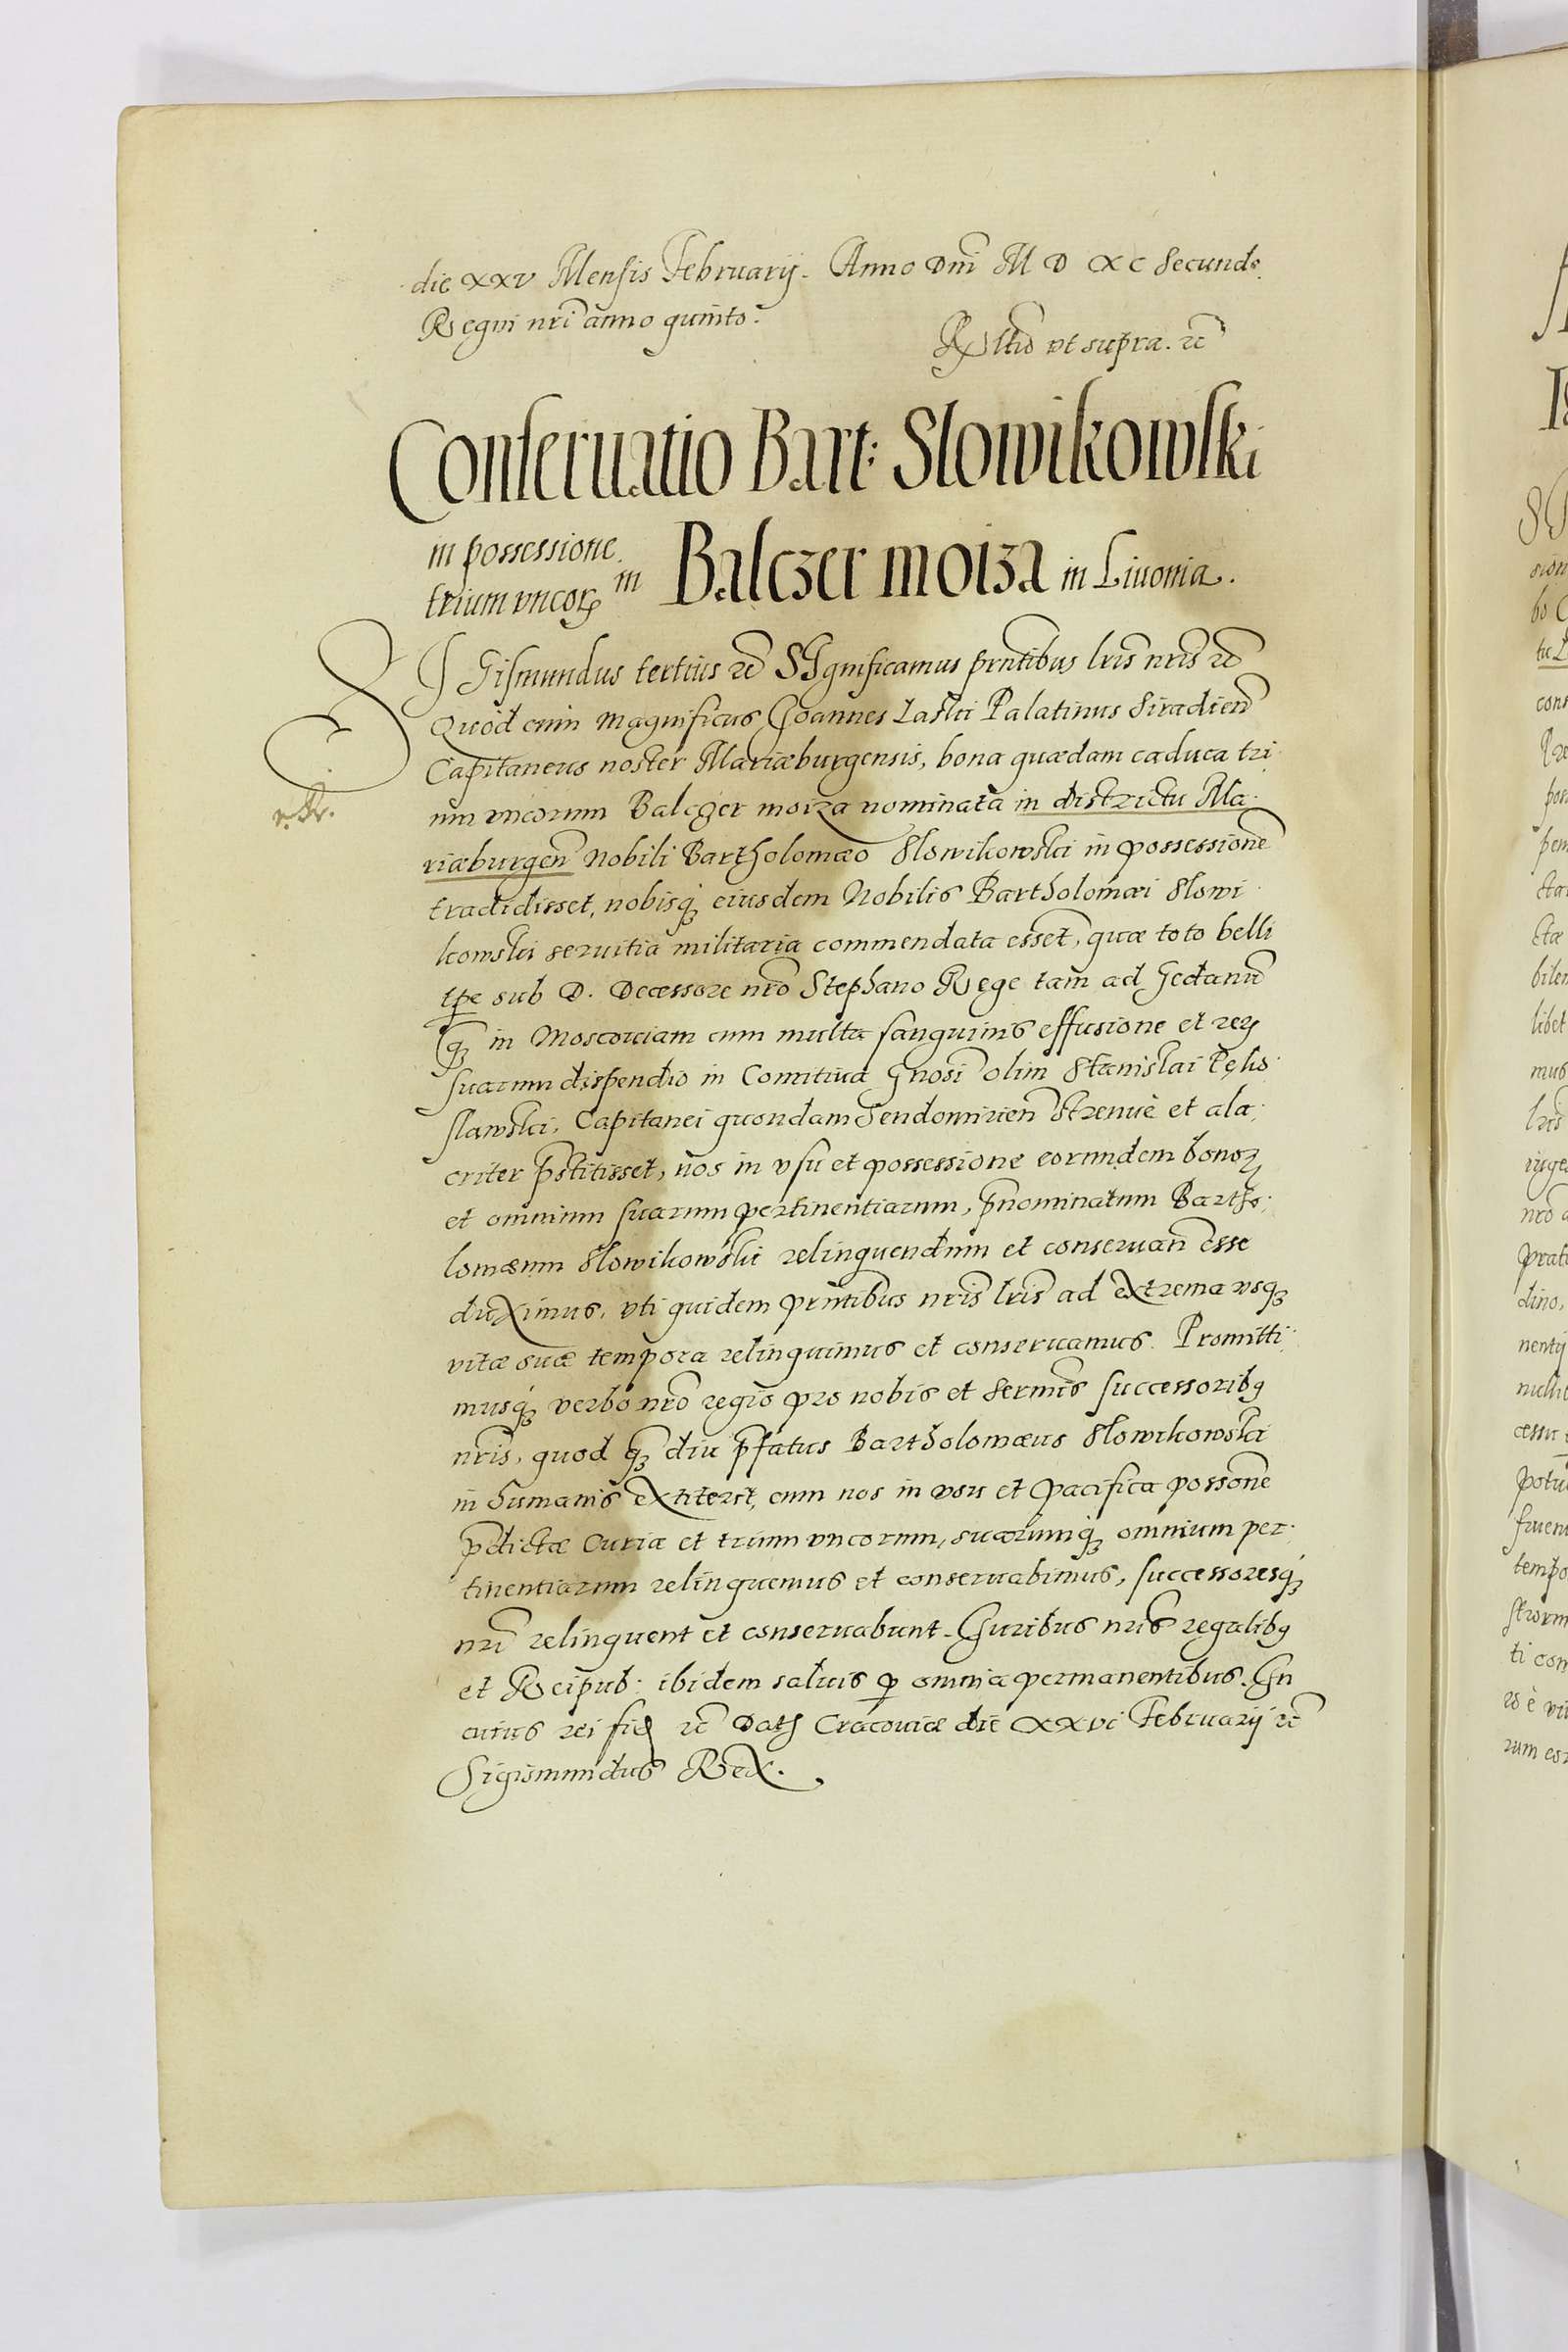 die XXV Mensis Februarij. Anno Dni M D XC Secundo.
Regni nri anno quinto.
Rltio vt supra. rc
Conseruatio Bart: Slowikowski
in possessione
trium vncor in Balczer moiza in Liuonia.
SIGismundus tertius rc SIgnificamus prntibus lris nris rc
Quod cum Magnificus Joannes Laski Palatinus Siradien
Capitaneus noster Mariæburgensis, bona quædam caduca tri
um vncorum Balczer moiza nominata in districtu Ma
riæburgen Nobili Bartholomæo Slowikowski in possessione
tradidisset, nobisq eiusdem Nobilis Bartholomæi Slowi
kowski seruitia militaria commendata esset, quæ toto belli
tpe sub D. Decessore nro Stephano Rege tam ad Gedanu
q in Moscouiam cum multa sanguinis effusione et rer
suarum dispendio in Comitiua Gnosi olim Stanislai Pęko
slawski, Capitanei quondam Sendomirien strenuè et ala
criter pstitisset, nos in vsu et possessione eorundem bonor
et omnium suarum pertinentiarum, pnominatum Bartho
lomæum Slowikowski relinquendum et conseruan esse
duximus, vti quidem prntibus nris lris ad extrema vsq
vitæ suæ tempora relinquimus et conseruamus. Promitti
musq verbo nro regio pro nobis et Sermis successorib
nris, quod q diu pfatus Bartholomæus Slowikowski
in humanis extiterit, eum nos in vsu et pacifica possone
pdictæ Curiæ et trium vncorum, suarumq omnium per
tinentiarum relinquemus et conseruabimus, successoresq
nri relinquent et conseruabunt. Juribus nris regalib
et Reipub: ibidem saluis p omnia permanentibus. In
cuius rei fid rc Dat Cracouiæ die XXVI Februarij rc
Sigismundus Rex.